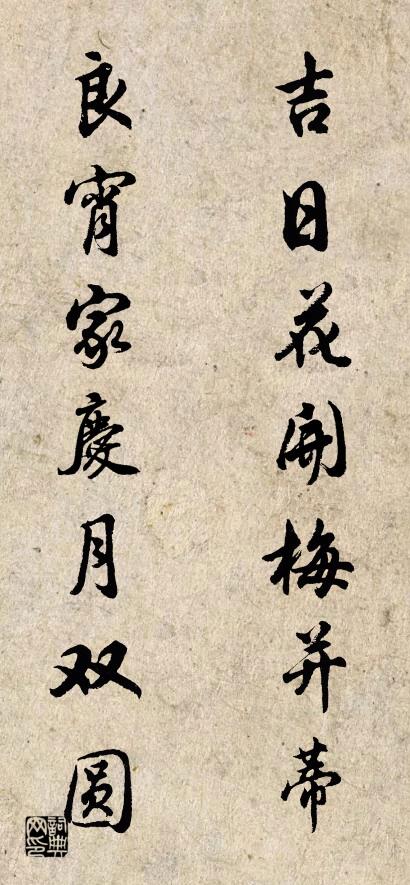 吉日花開梅并蒂
良宵家慶月双圆
詞典网印